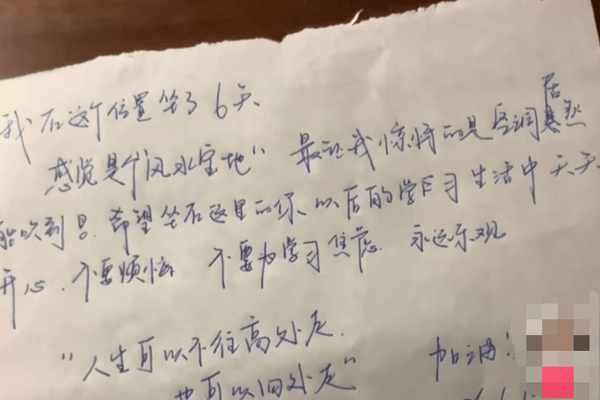 我在这个位置坐了6天
感觉是个风水宝地" 最让我惊讶的是空调居然
能吹到 希望坐在这里的你, 以后的学习生活中 天天
开心. 不要烦恼 不要为学习焦虑. 永远乐观
"人生可以不往高处走.
也可以四处走"
加油!